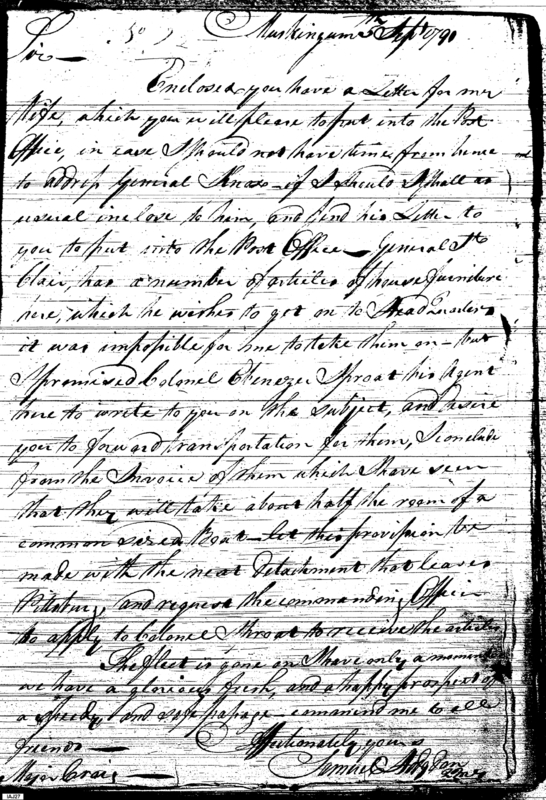 Muskingum 3th Sept 1791
Sir —
Enclosed you have a Letter for my
Wife, which you will please to put into the Post
Office, in case I should not have time from hence
to address General Knox — if I should I shall as
usual inclose to him, and send his Letter to
you to put into the Post Office — General St
Clair, has a number of articles of house furniture
here, which he wishes to get on to Head Quarters
it was impossible for me to take them on — but
I promised Colonel Ebenezer Sproat his Agent
here to write to you on the subject, and desire
you to forward transportation for them, I conclude
from the Invoice of them which I have seen
that they will take about half the room of a
common sized Boat — let this provision be
made with the next detachment that leaves
Pittsburg, and request the commanding Officer
to apply to Colonel Sproat to receive the articles
The fleet is gone on I have only a moment
we have a glorious fresh, and a happy prospect of
a speedy and safe passage — command me to all
friends —
Affectionately yours
Samuel Hodgdon
Major Craig —
IAJ27